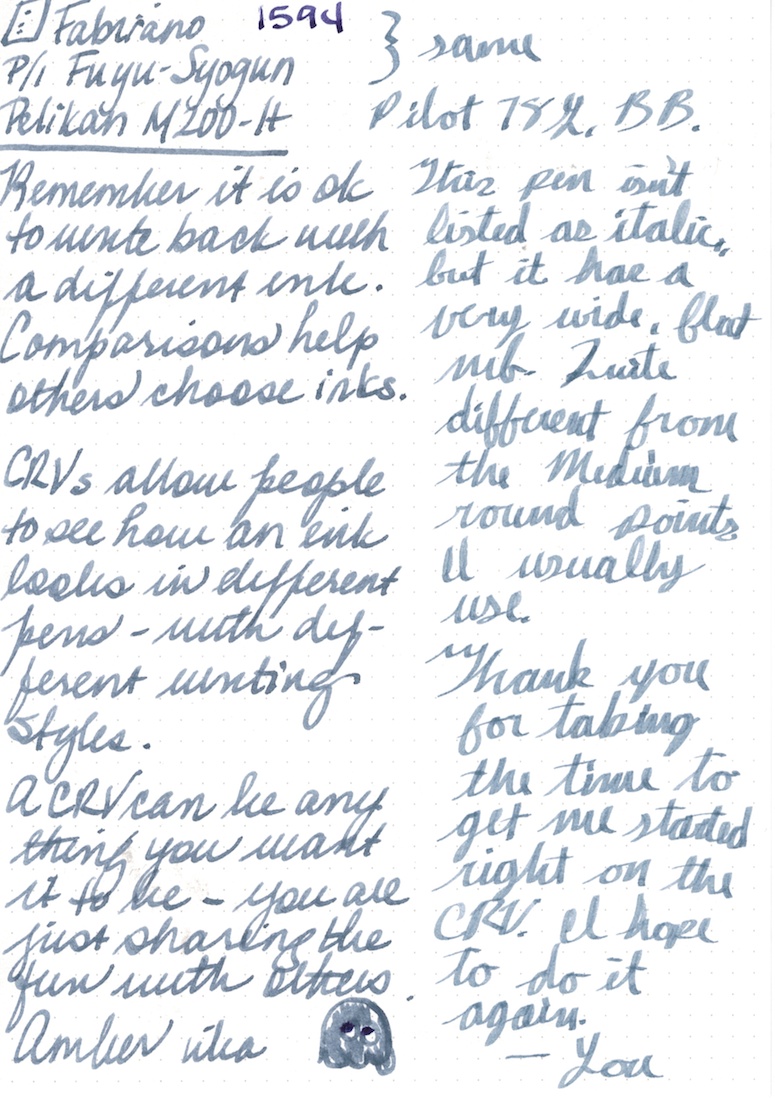 Fabriano 1594
P/i Fuyu-Syogun
Pelikan M200-H
Remember it is ok
to write back with
a different ink.
Comparisons help
others choose inks.
CRVs allow people
to see how an ink
looks in different
pens - with dif-
ferent writing
styles.
A CRV can be any
thing you want
it to be - you are
just sharing the
fun with others.
Amber
} same
Pilot 782, BB.
This pen isn't
listed as italic,
but it has a
very wide, flat
nib. Quite
different from
the Medium
round points
I usually
use.
Thank you
for taking
the time to
get me started
right on the
CRV. I hope
to do it
again.
— You